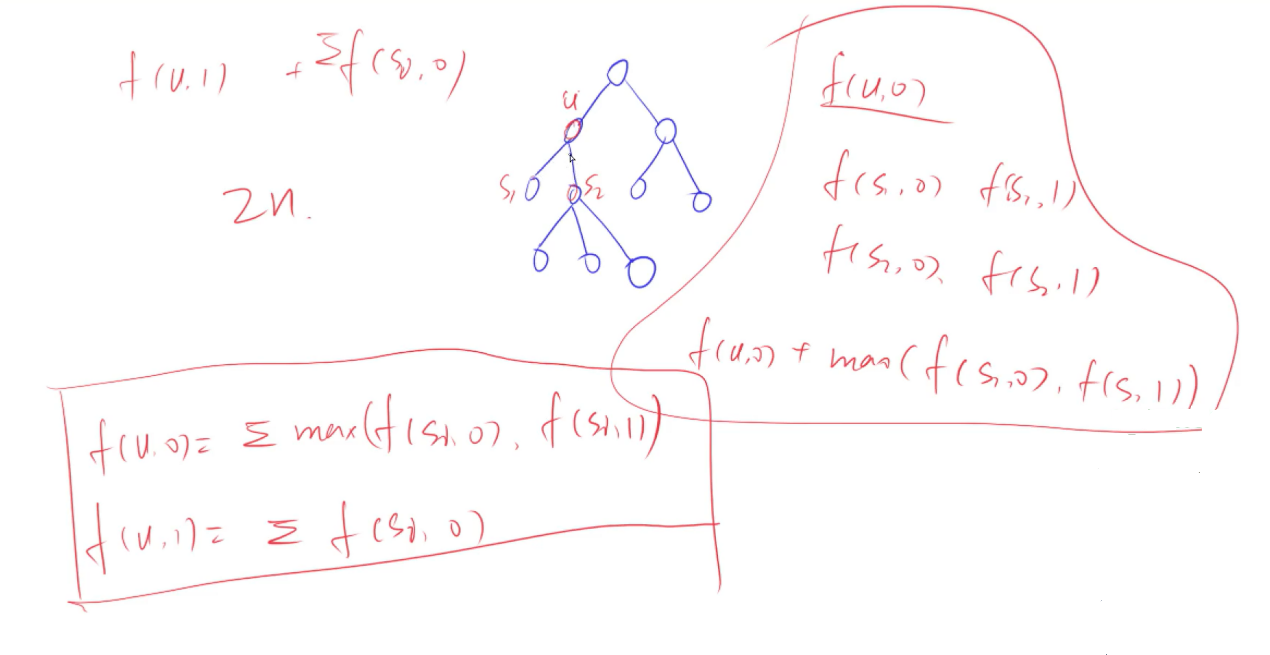 f(u,1) + Σf(si,0)
2n.
u
s1
s2
f(u,0)
f(s1,0) f(s1,1)
f(s2,0), f(s2,1)
f(u,0) + max(f(s1,0), f(s1,1))
f(u,0)= Σ max(f(si,0), f(si,1))
f(u,1)= Σ f(si,0)